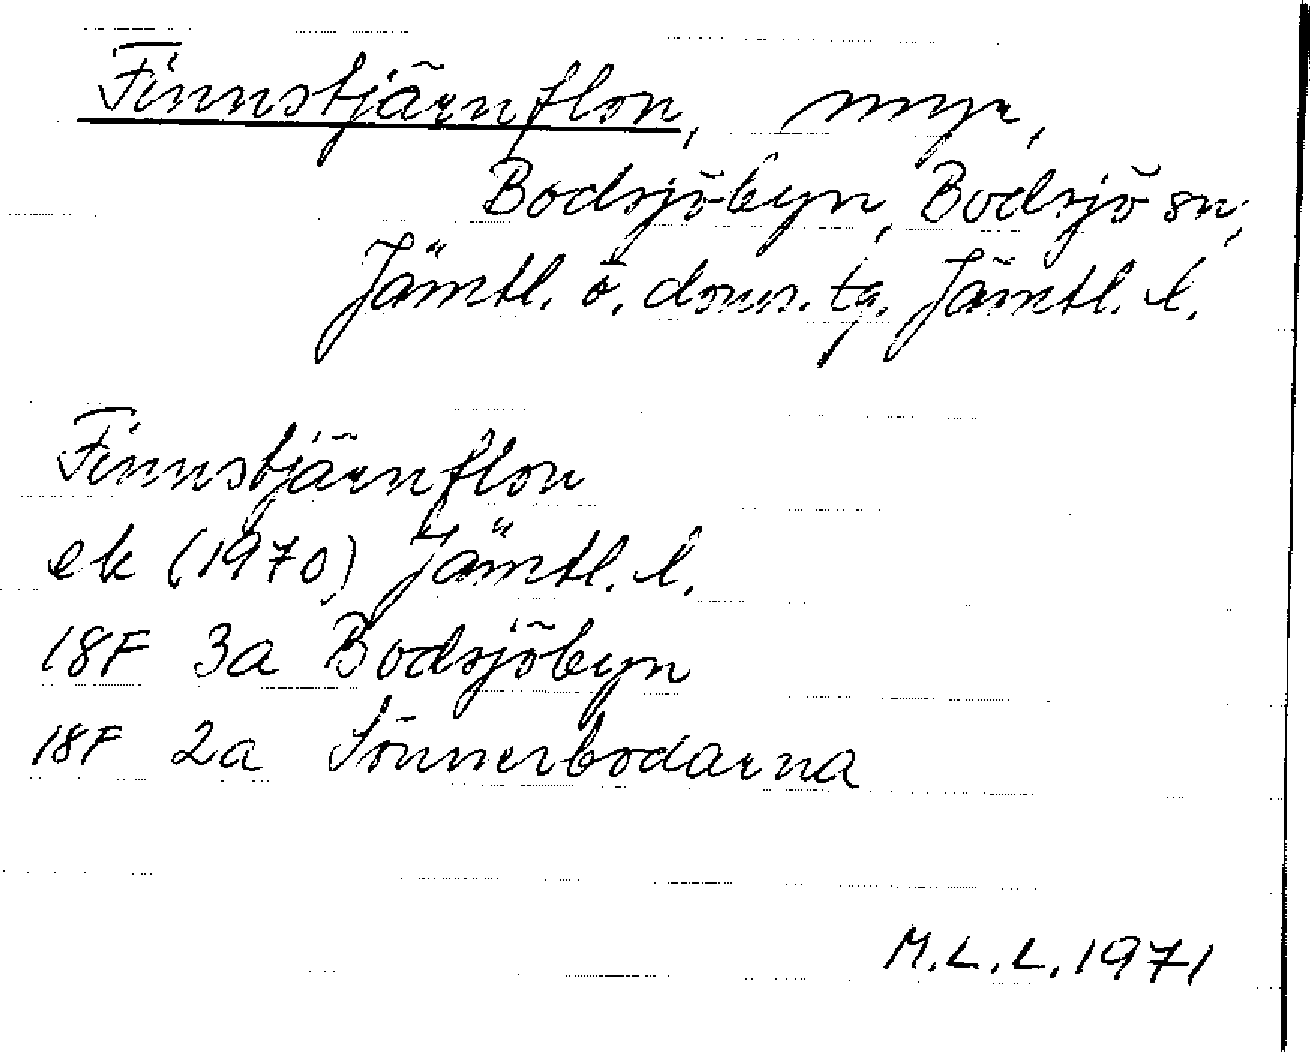 Finnstjärnflon, myr,
Bodsjöbyn, Bodsjö sn,
Jämtl. ö. doms. tg. Jämtl. l.
Finnstjärnflon
ek (1970) Jämtl. l.
18F 3a Bodsjöbyn
18F 2a Sönnerbodarna
M.L.L. 1971